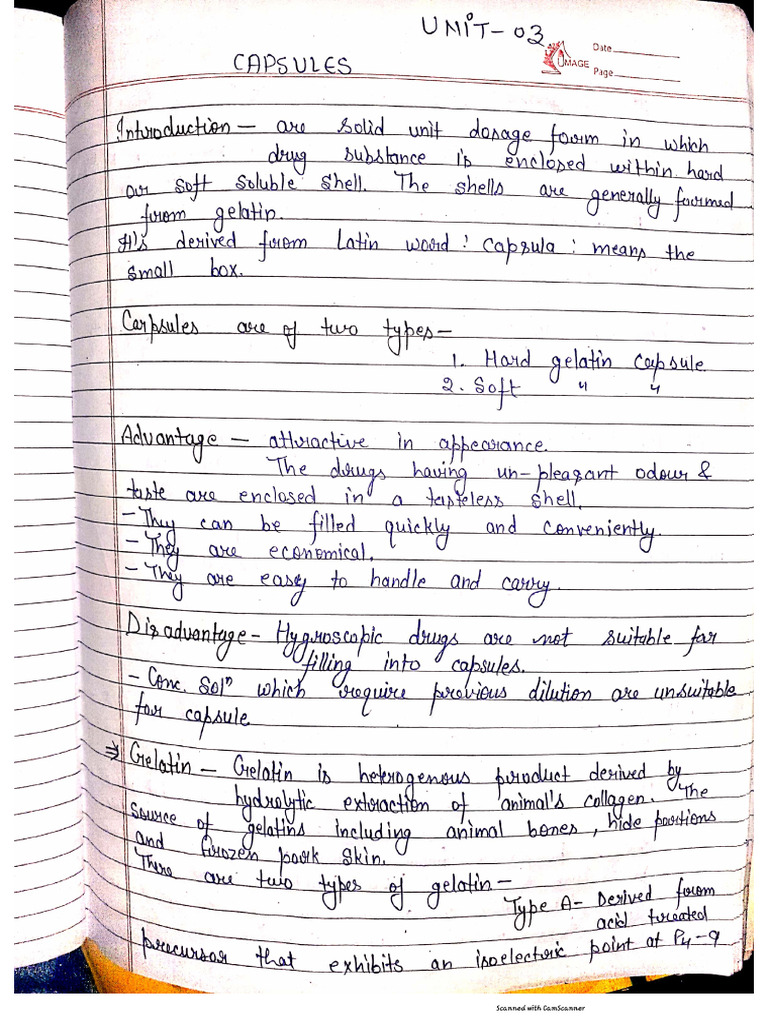 UNIT-03
IMAGE
Date
Page
CAPSULES
Introduction - are solid unit dosage form in which
drug substance is enclosed within hard
or soft soluble shell. The shells are generally formed
from gelatin.
It's derived from Latin word : capsula : means the
small box.
Carpsules are of two types-
1. Hard gelatin capsule
2. Soft " "
Advantage - attractive in appearance.
The drugs having un-pleasant odour &
taste are enclosed in a tasteless shell.
- They can be filled quickly and conveniently.
- They are economical.
- They are easy to handle and carry.
Disadvantage - Hygroscopic drugs are not suitable for
filling into capsules.
- Conc. Solⁿ which require previous dilution are unsuitable
for capsule
⇒ Gelatin - Gelatin is heterogenous product derived by
hydrolytic extraction of animal's collagen. The
source of gelatins including animal bones, hide portions
and frozen pork skin.
There are two types of gelatin-
Type A- Derived from
acid treated
precursor that exhibits an isoelectric point at PH-9
Scanned with CamScanner